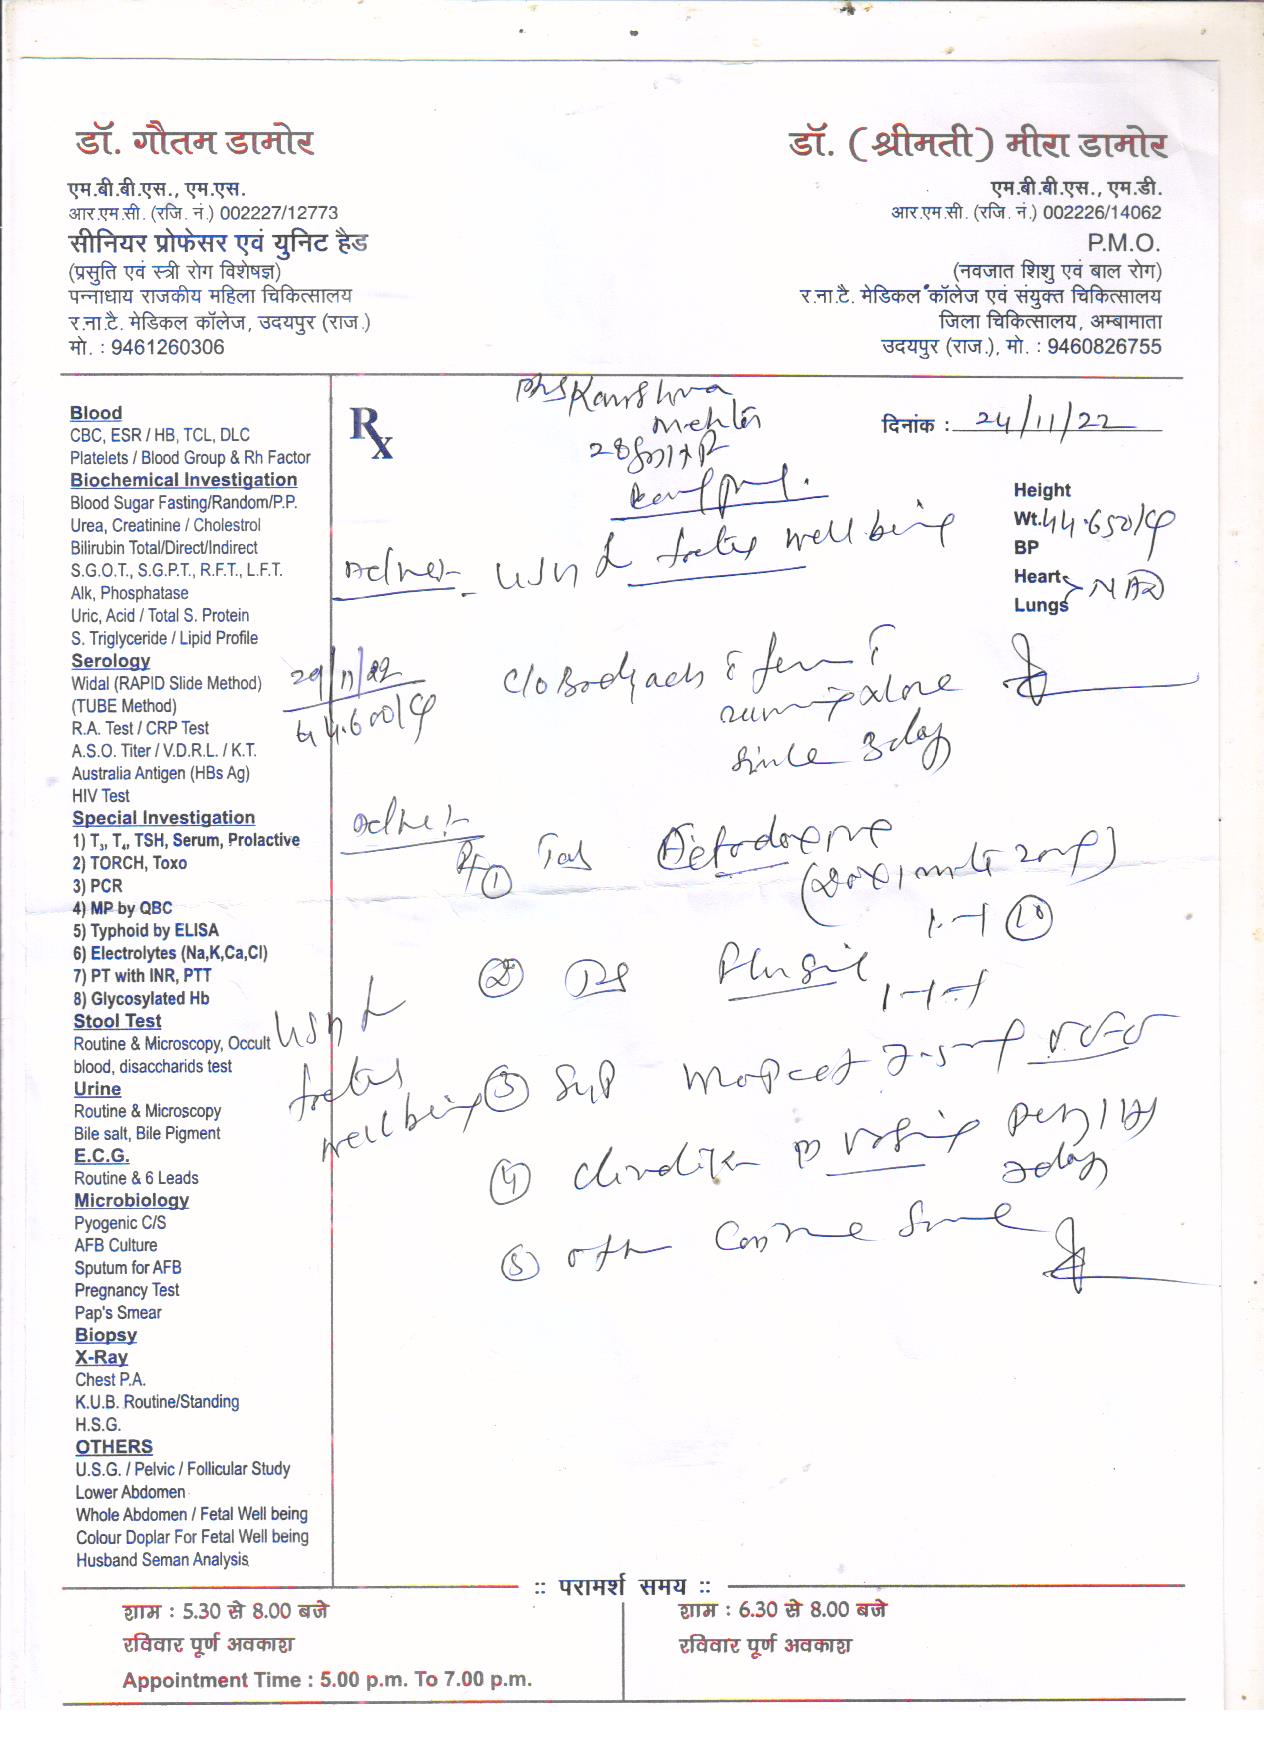 डॉ. गौतम डामोर
एम.बी.बी.एस., एम.एस.
आर.एम.सी. (रजि. नं.) 002227/12773
सीनियर प्रोफेसर एवं युनिट हैड
(प्रसुति एवं स्त्री रोग विशेषज्ञ)
पन्नाधाय राजकीय महिला चिकित्सालय
र.ना.टै. मेडिकल कॉलेज, उदयपुर (राज.)
मो. : 9461260306
डॉ. (श्रीमती) मीरा डामोर
एम.बी.बी.एस., एम.डी.
आर.एम.सी. (रजि. नं.) 002226/14062
P.M.O.
(नवजात शिशु एवं बाल रोग)
र.ना.टै. मेडिकल कॉलेज एवं संयुक्त चिकित्सालय
जिला चिकित्सालय, अम्बामाता
उदयपुर (राज.), मो. : 9460826755
Blood
CBC, ESR / HB, TCL, DLC
Platelets / Blood Group & Rh Factor
Biochemical Investigation
Blood Sugar Fasting/Random/P.P.
Urea, Creatinine / Cholestrol
Bilirubin Total/Direct/Indirect
S.G.O.T., S.G.P.T., R.F.T., L.F.T.
Alk, Phosphatase
Uric, Acid / Total S. Protein
S. Triglyceride / Lipid Profile
Serology
Widal (RAPID Slide Method)
(TUBE Method)
R.A. Test / CRP Test
A.S.O. Titer / V.D.R.L. / K.T.
Australia Antigen (HBs Ag)
HIV Test
Special Investigation
1) T₃, T₄, TSH, Serum, Prolactive
2) TORCH, Toxo
3) PCR
4) MP by QBC
5) Typhoid by ELISA
6) Electrolytes (Na,K,Ca,Cl)
7) PT with INR, PTT
8) Glycosylated Hb
Stool Test
Routine & Microscopy, Occult
blood, disaccharids test
Urine
Routine & Microscopy
Bile salt, Bile Pigment
E.C.G.
Routine & 6 Leads
Microbiology
Pyogenic C/S
AFB Culture
Sputum for AFB
Pregnancy Test
Pap's Smear
Biopsy
X-Ray
Chest P.A.
K.U.B. Routine/Standing
H.S.G.
OTHERS
U.S.G. / Pelvic / Follicular Study
Lower Abdomen
Whole Abdomen / Fetal Well being
Colour Doplar For Fetal Well being
Husband Seman Analysis
Rx
दिनांक : 24/11/22
Height
Wt. 44.650
BP
Heart
Lungs NAD
well being
29/11/22
44.600
C/O Bodyach
since 3 day
① Tab
②
③ Syp
well being
④
⑤
:: परामर्श समय ::
शाम : 5.30 से 8.00 बजे
रविवार पूर्ण अवकाश
Appointment Time : 5.00 p.m. To 7.00 p.m.
शाम : 6.30 से 8.00 बजे
रविवार पूर्ण अवकाश